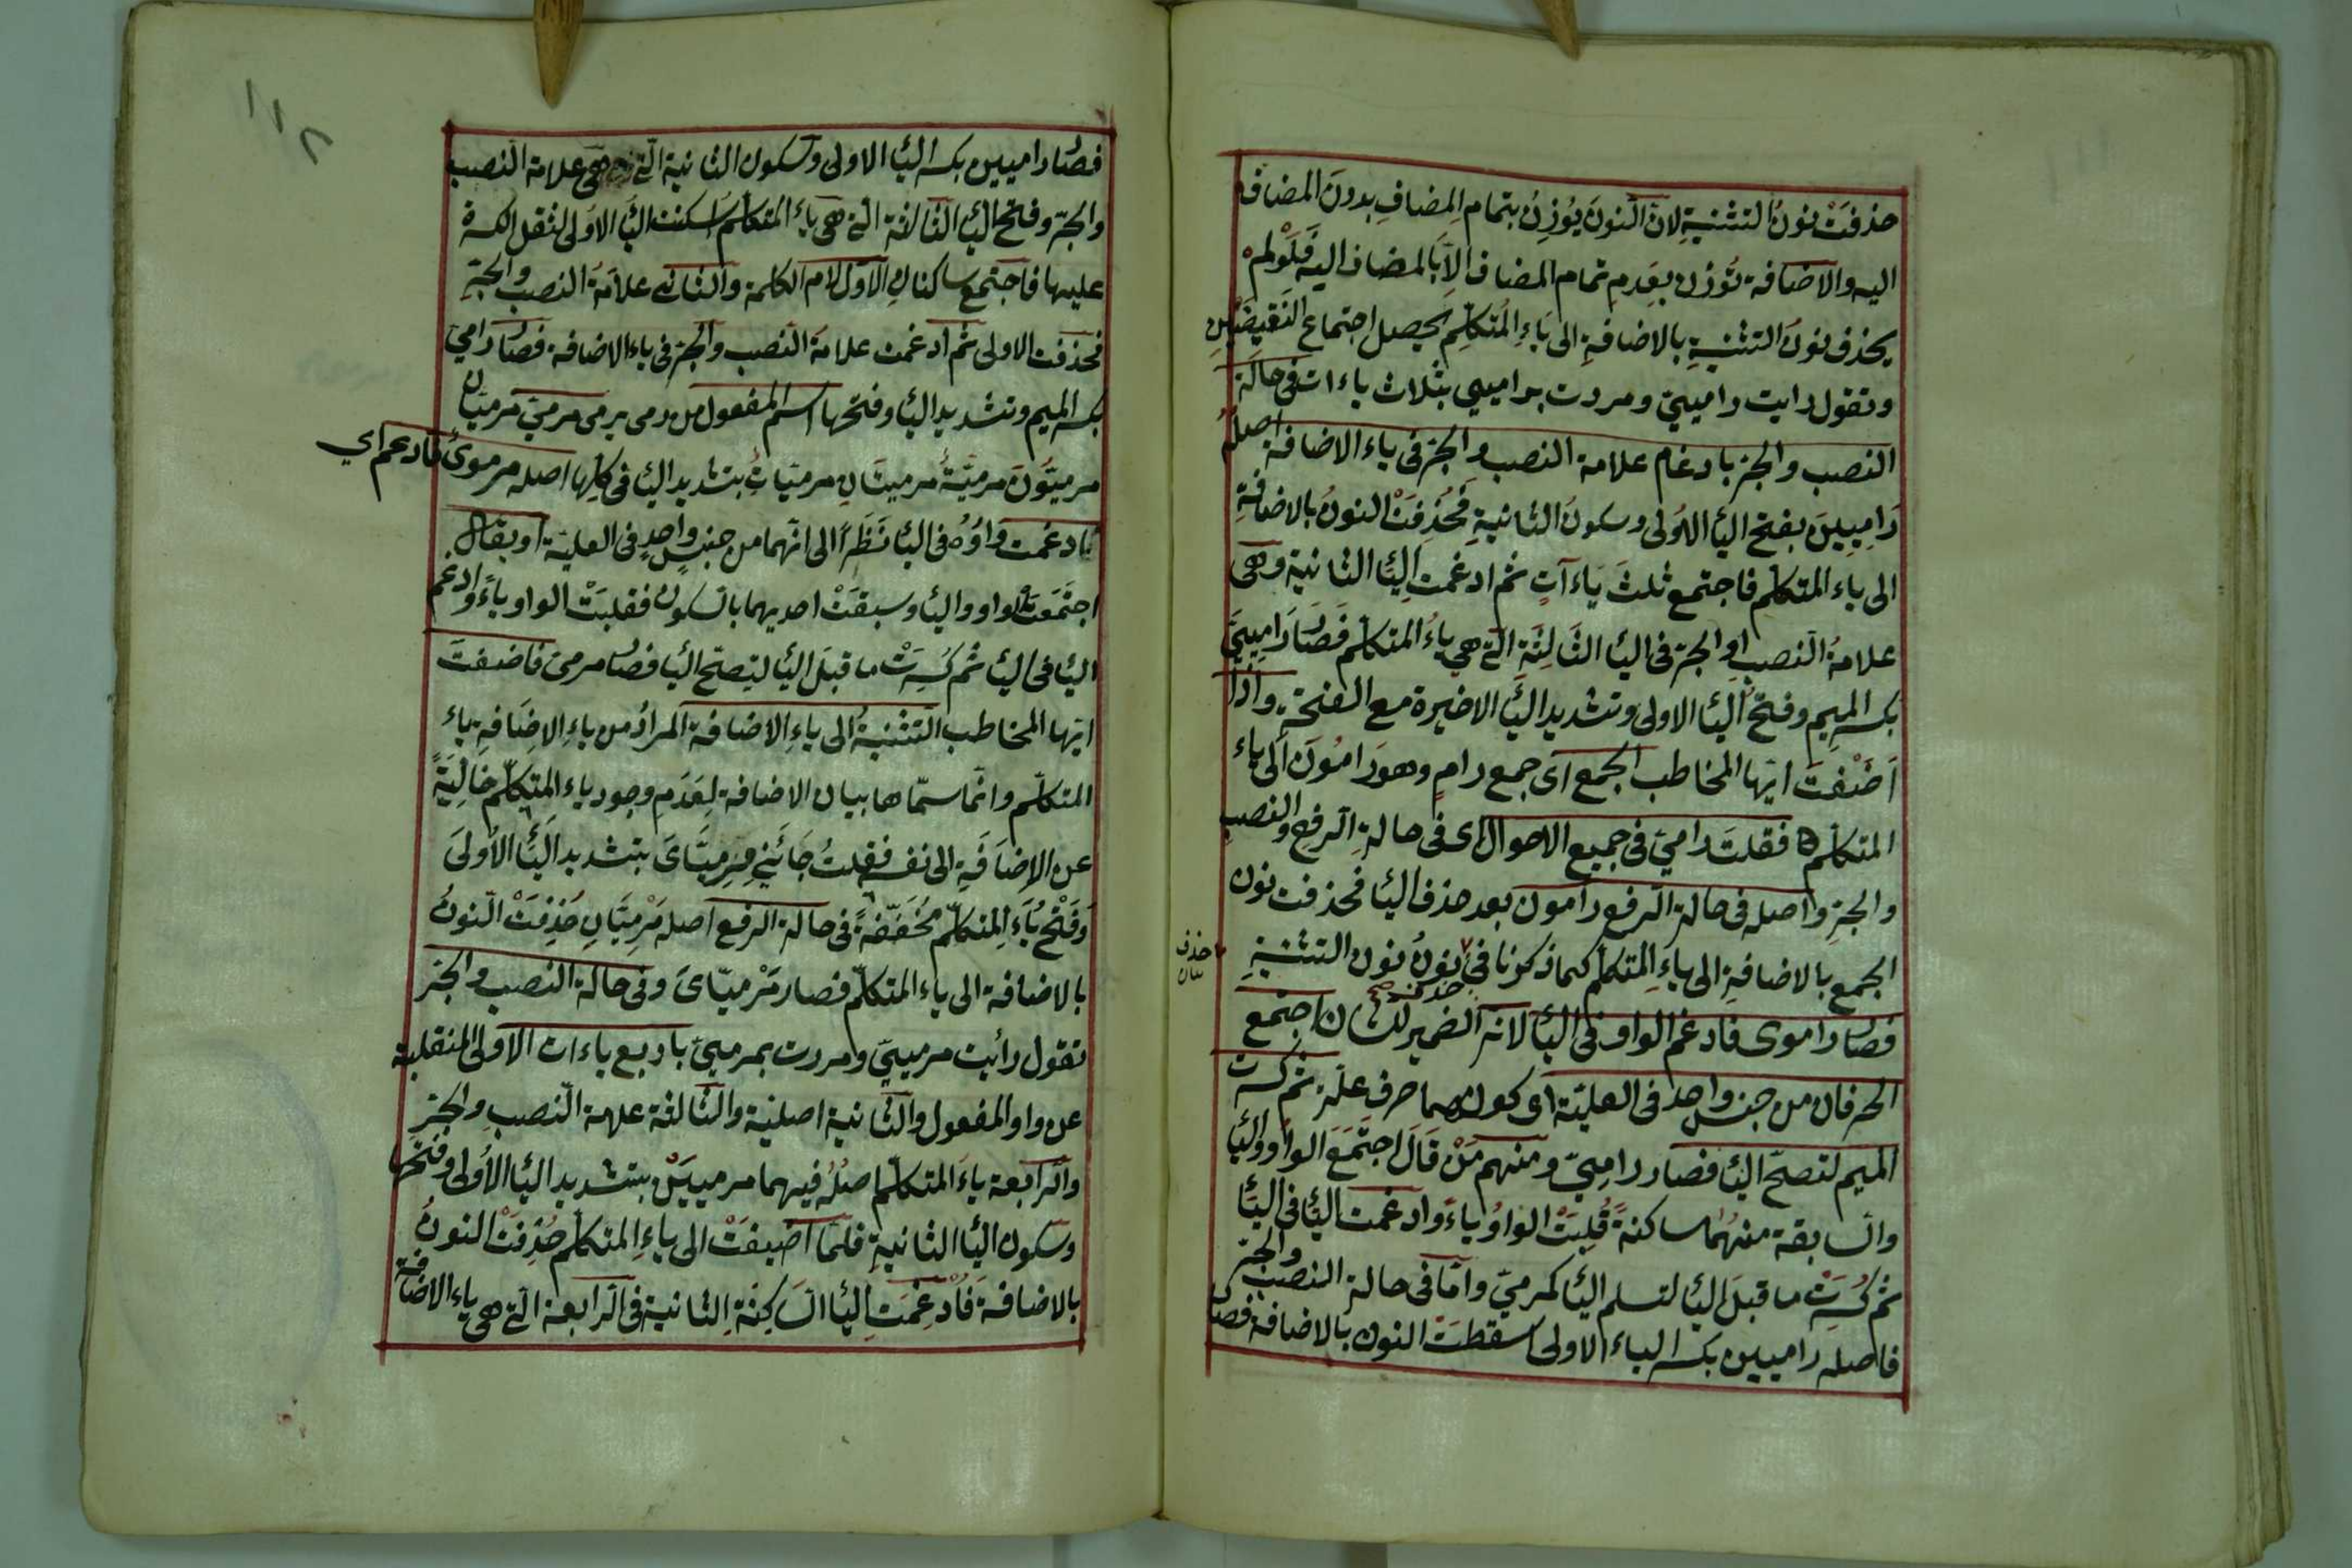 حذفَتْ نونُ التثنيةِ لان النونَ يُوزِنُ بتمام المضافِ بدونَ المضاف
اليه والاضافة تُوزن بعِدمِ تمام المضاف الاّ بالمضاف اليه فَلَوْ لَمْ
يحذف نونُ التثنيةِ بالاضافةِ الى ياءِ المُتكلّمِ يحصل اجتماع النّقيضَيْنِ
وتقول رايت راميىّ ومررت براميىي بثلاث ياءات فى حالة
النصب والجرّ بادغام علامة النصب والجرّ فى ياء الاضافة اصلُه
رَامِيِينَ بفتح اليَا الاُولى وسكونُ الثانيةِ فَحُذِفَتْ النونُ بالاضافةِ
الى ياء المتكلّم فاجتمع ثلثَ يَاءآتٍ ثم ادغمت اليَا الثانية وهى
علامةُ النصبِ او الجرّ فى اليا الثَالِثَة التى هى ياءُ المتكلم فصَارَ رَامِيىَّ
بكسر الميمِ وفتح اليا الاولى وتشديد اليَا الاخيرة مع الفتحة واذا
اَضَفْتَ ايّها المخاطب الجمع اى جمع رامٍ وهو رَامُونَ الى ياء
المتكلّم فقلتَ رامىّ فى جميع الاحوال اى فى حالةِ الرفع والنصب
والجرّ واصله فى حالة الرفع رامون بعد حذف اليا فحذفت نون
الجمع بالاضافةِ الى ياءِ المتكلم كما ذكرنا فى نونُ نون التثنيةِ
حذف
بيان
فصار راموى فادغم الواو فى اليا لانه الضمير للشان اجتمع
الحرفان من جنس واحد فى العليّة اى كونهما حرف علّة ثم كسرت
الميم لتصحّ اليا فصار رامِىّ ومنهم مَنْ قَالَ اجتَمَعَ الواو واليا
والسابقة منهُما ساكنةً قُلِبَتْ الواوُ ياءً وادغمت اليَا فى اليَا
ثم كُسِرَتْ ما قبلَ اليا لتسلم اليا كمرمىّ وامّا فى حالة النصب والجرّ
فاصله راميين بكسر الياء الاولى سقطَتْ النون بالاضافة فصا
١١٢
فصار راميين بكسر اليا الاولى وسكون الثانية التى هى علامة النصب
والجرّ وفتح اليا الثالثة التى هى ياء المتكلّم اسكنت اليَا الاُولى لثقل الكسرة
عليها فاجتمع ساكنانِ الاول لام الكلمة والثانى علامَةُ النصبِ والجرّ
فحذفت الاولى ثم ادغمت علامة النصب والجرّ فى ياء الاضافة فصار رامىّ
بكسر الميم وتشديد اليا وفتحها اسم المفعول من رمى يرمى مرمىّ مرميّان
مرميّونَ مرميّةُ مرميتَانِ مرميّاتُ بتشديد اليا فى كلها اصله مرموىٌ فادغم اى
فادغمت وَاوُهُ فى اليا نَظَرًا الى انّهما من جنسٍ واحدٍ فى العليّة او يقال
اجتَمَعَتْ الواو واليا وسبقَتْ احديهما بالسكون فقلبَتْ الواو ياءً وادغم
اليا فى اليا ثم كُسِرَتْ ما قبلَ اليا ليَصحّ اليا فصار مرمىّ فاضفتَ
ايّها المخاطب التّثنيةُ الى ياءِ الاضافة المرادُ من ياءِ الاِضَافةِ ياء
المتكلّم وانّما سمّاها بيان الاضافة لِعَدَمِ وجود ياء المتكلّم خَالِيَةً
عن الاِضَافَةِ الى نفسه فقلتُ جَائَنِى مِرمِيَّاىَ بتشديد اليَا الاُولىَ
وَفَتْح يَاءِ المتكلّم مُخَفّفةً فى حالة الرفع اصله مَرْمِيَّانِ حُذِفَتْ النّونُ
بالاضافة الى ياء المتكلّم فصار مَرْمِيّاىَ وفى حالة النصب والجرّ
تقول رأيت مرمييّ ومررت بمرمييّ باربع ياءات الاولى المنقلبة
عن واو المفعول والثانية اصلية والثالثة علامة النّصبِ والجرّ
والرابعة ياءَ المتكلّم اصلُهُ فيهما مرمييَيْن بتشديد اليا الاُولى وفتحها
وسكون اليَا الثانيةِ فلمّا اضيفَتْ الى ياءِ المتكلم حُذِفَتْ النونُ
بالاضافة فَاُدْغِمَتِ اليا السَاكِنَةُ الثانية فى الرابعة التى هى ياء الاضافة